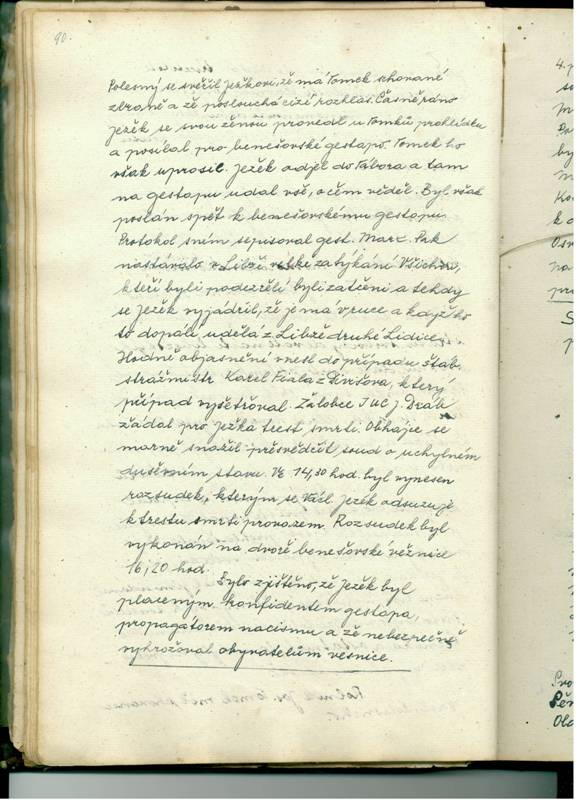 90.
Polesný se svěřil Ježkovi, že má Tomek schované
zbraně a že poslouchá cizí rozhlas. Časně ráno
Ježek se svou ženou provedl u Tomků prohlídku
a posílal pro benešovské gestapo. Tomek ho
však uprosil. Ježek odjel do Tábora a tam
na gestapu udal vše, o čem věděl. Byl však
poslán spět k benešovskému gestapu.
Protokol s ním sepisoval gest. Marx. Pak
nastávalo v Libži velké zatýkání. Všichni,
kteří byli podezřelí byli zatčeni a tehdy
se Ježek vyjádřil, že je má v ruce a když ho
to dopálí udělá z Libže druhé Lidice.
Hodně objasnění vnesl do případu štáb.
strážmistr Karel Fiala z Divišova, který
případ vyšetřoval. Žalobce JUC J. Dráb
žádal pro Ježka trest smrti. Obhájce se
marně snažil přesvědčit soud o uchylném
duševním stavu. Ve 14,30 hod. byl vynesen
rozsudek, kterým se Václ. Ježek odsuzuje
k trestu smrti provazem. Rozsudek byl
vykonán na dvoře benešovské věznice
16,20 hod.
Bylo zjištěno, že Ježek byl
placeným konfidentem gestapa,
propagátorem nacismu a že nebezpečně
vyhrožoval obyvatelům vesnice.